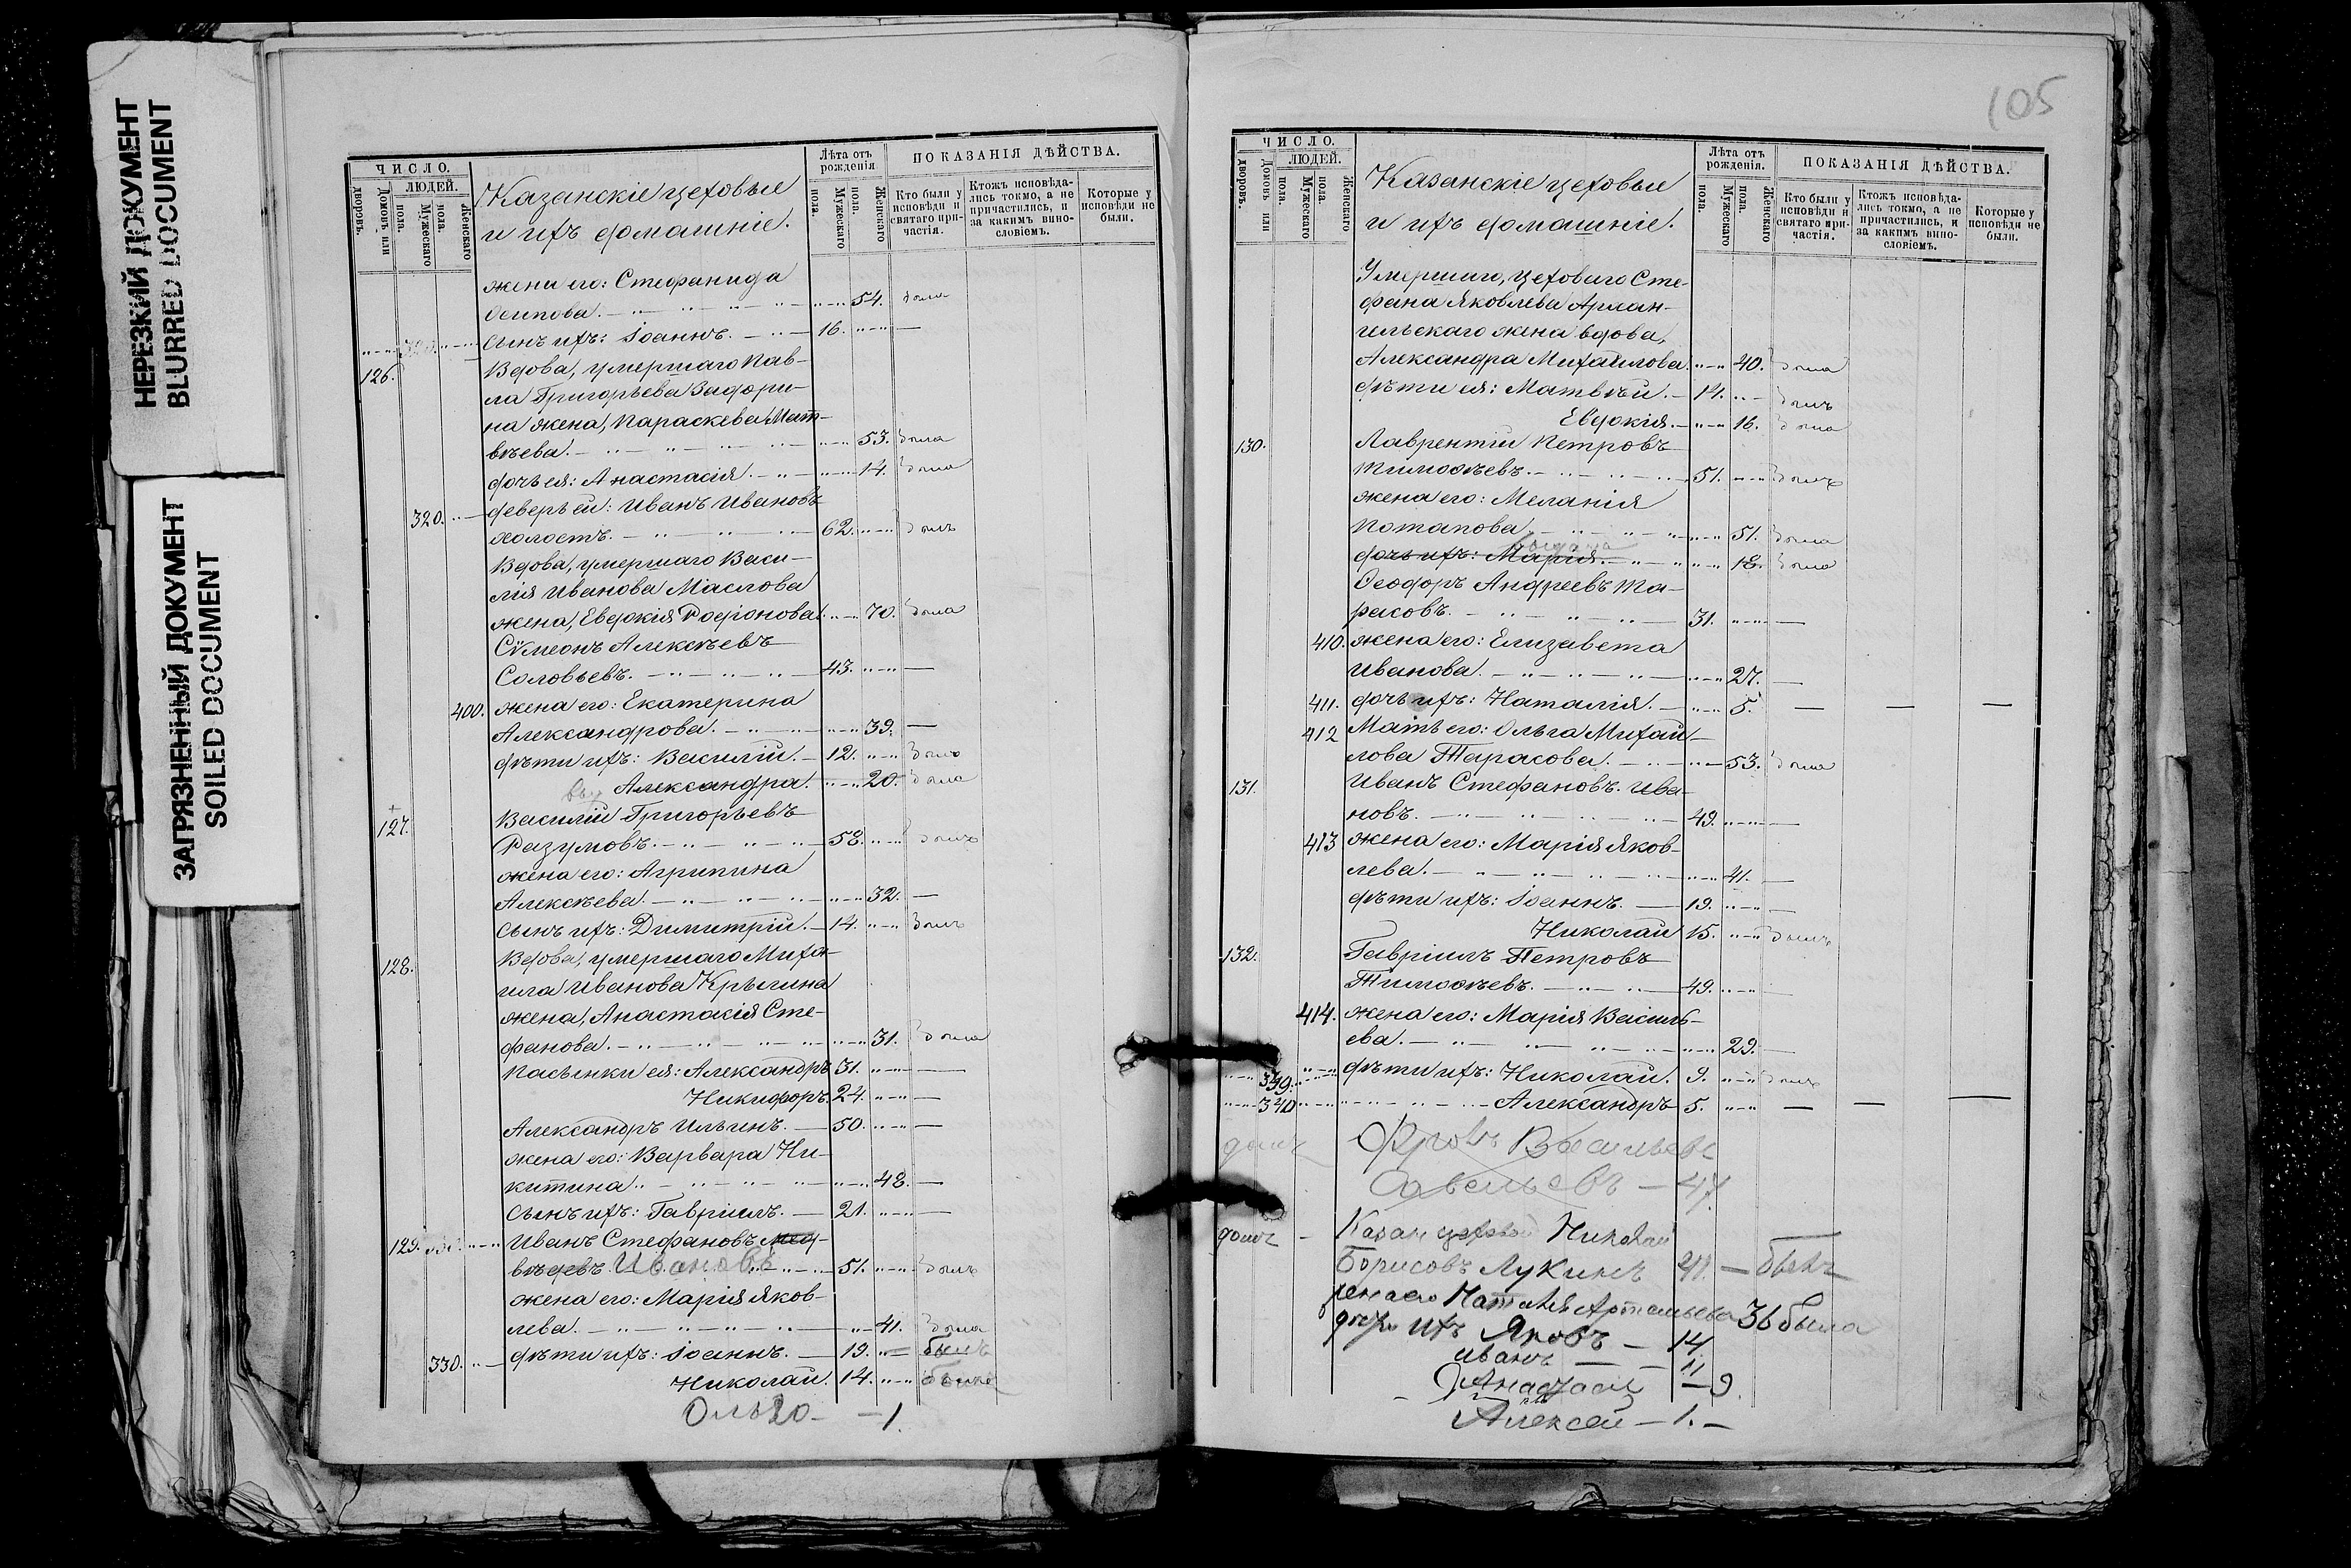 НЕРЕЗКИЙ ДОКУМЕНТ
BLURRED DOCUMENT
ЗАГРЯЗНЕННЫЙ ДОКУМЕНТ
SOILED DOCUMENT
ЧИСЛО.
ЛЮДЕЙ.
дворовъ.
Домовъ или
Мужескаго пола.
Женскаго пола.
Казанскіе цеховые
и ихъ домашніе.
Лѣта отъ рожденія
Мужескаго пола.
Женскаго пола.
ПОКАЗАНІЯ ДѢЙСТВА.
Кто были у исповѣди и святаго при-частія.
Ктожъ исповѣда-лись токмо, а не причастились, и за какимъ вино-словіемъ.
Которые у исповѣди не были.
жена его: Стефанида
Осипова. 54. была
сынъ ихъ: Іоаннъ. 16.
126. Вдова, умершаго Пав-
ла Григорьева Задори-
на жена, Параскева Мат-
вѣева. 53. была
дочь ея: Анастасія. 14. была
320. деверь ей: Иванъ Ивановъ
холостъ. 62. былъ
Вдова, умершаго Васи-
лія Иванова Маслова
жена, Евдокія Родіонова. 70. была
Сѵмеонъ Алексѣевъ
Соловьевъ. 43.
400. жена его: Екатерина
Александрова. 39.
дѣти ихъ: Василій. 12. былъ
Александра. 20. была
127. Василій Григорьевъ
Разумовъ. 58. былъ
жена его: Агрипина
Алексѣева. 32.
сынъ ихъ: Димитрій. 14. былъ
128. Вдова, умершаго Миха-
ила Иванова Крылина
жена, Анастасія Сте-
фанова. 31. была
пасынки ея: Александръ 31.
Никифоръ. 24.
Александръ Ильинъ. 50.
жена его: Варвара Ни-
китина. 48.
сынъ ихъ: Гавріилъ. 21.
129. Иванъ Стефановъ Мед-
вѣдевъ. Ивановъ 51. былъ
жена его: Марія Яков-
лева. 41. была
330. дѣти ихъ: Іоаннъ. 19. былъ
Николай. 14. былъ
Ольга 1.
105
ЧИСЛО.
ЛЮДЕЙ.
дворовъ.
Домовъ или
Мужескаго пола.
Женскаго пола.
Казанскіе цеховые
и ихъ домашніе.
Лѣта отъ рожденія.
Мужескаго пола.
Женскаго пола.
ПОКАЗАНІЯ ДѢЙСТВА.
Кто были у исповѣди и святаго при-частія.
Ктожъ исповѣда-лись токмо, а не причастились, и за какимъ вино-словіемъ.
Которые у исповѣди не были.
Умершаго, цеховаго Сте-
фана Яковлева Архан-
гельскаго жена вдова,
Александра Михайлова. 40. была
дѣти ея: Матвѣй. 14. былъ
Евдокія. 16. была
130. Лаврентій Петровъ
Тимоѳѣевъ. 51. былъ
жена его: Меланія
Потапова. 51. была
выдана
дочь ихъ: Марія. 18. была
Ѳеодоръ Андреевъ Та-
расовъ. 31.
410. жена его: Елизавета
Иванова. 27.
411. дочь ихъ: Наталія. 5.
412 Мать его: Ольга Михай-
лова Тарасова. 53. была
131. Иванъ Стефановъ Ива-
новъ. 49.
413 жена его: Марія Яков-
лева. 41.
дѣти ихъ: Іоаннъ. 19.
Николай 15. былъ
132. Гавріилъ Петровъ
Тимоѳѣевъ. 49.
414. жена его: Марія Василь-
ева. 29.
339. дѣти ихъ: Николай. 9. былъ
340 Александръ 5.
Васильевъ
Савельевъ 47.
Казан цеховой Николай
Борисовъ Лукинъ былъ
жена его Наталія 36 была
ихъ Яковъ 14
Иванъ 11
Анастасія 9.
Алексей 1.